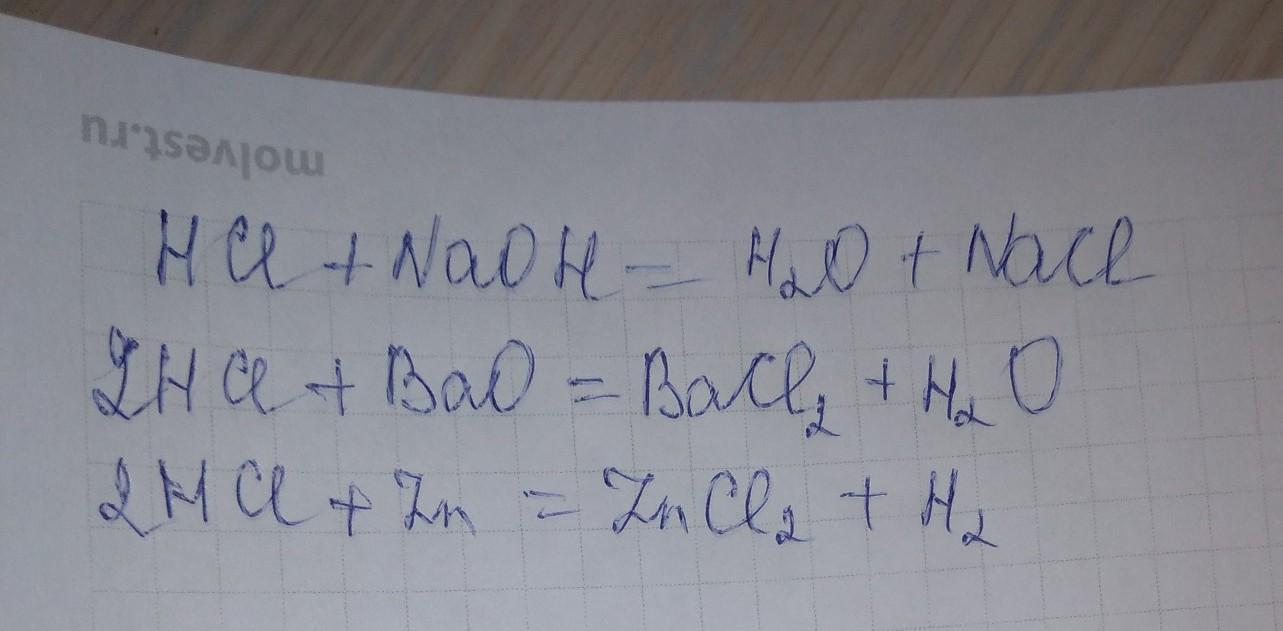 molvest.ru
HCl + NaOH = H₂O + NaCl
2HCl + BaO = BaCl₂ + H₂O
2HCl + Zn = ZnCl₂ + H₂